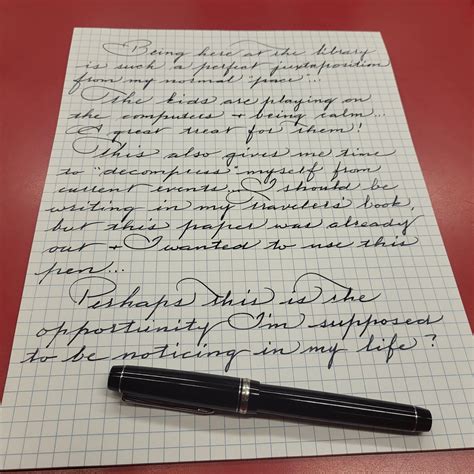 Being here at the library
is such a perfect juxtaposition
from my normal "pince"...
The kids are playing on
the computers + being calm...
A great treat for them!
This also gives me time
to "decompress" myself from
current events. I should be
writing in my travelers book,
but this paper was already
out + I wanted to use this
pen...
Perhaps this is the
opportunity I'm supposed
to be noticing in my life?